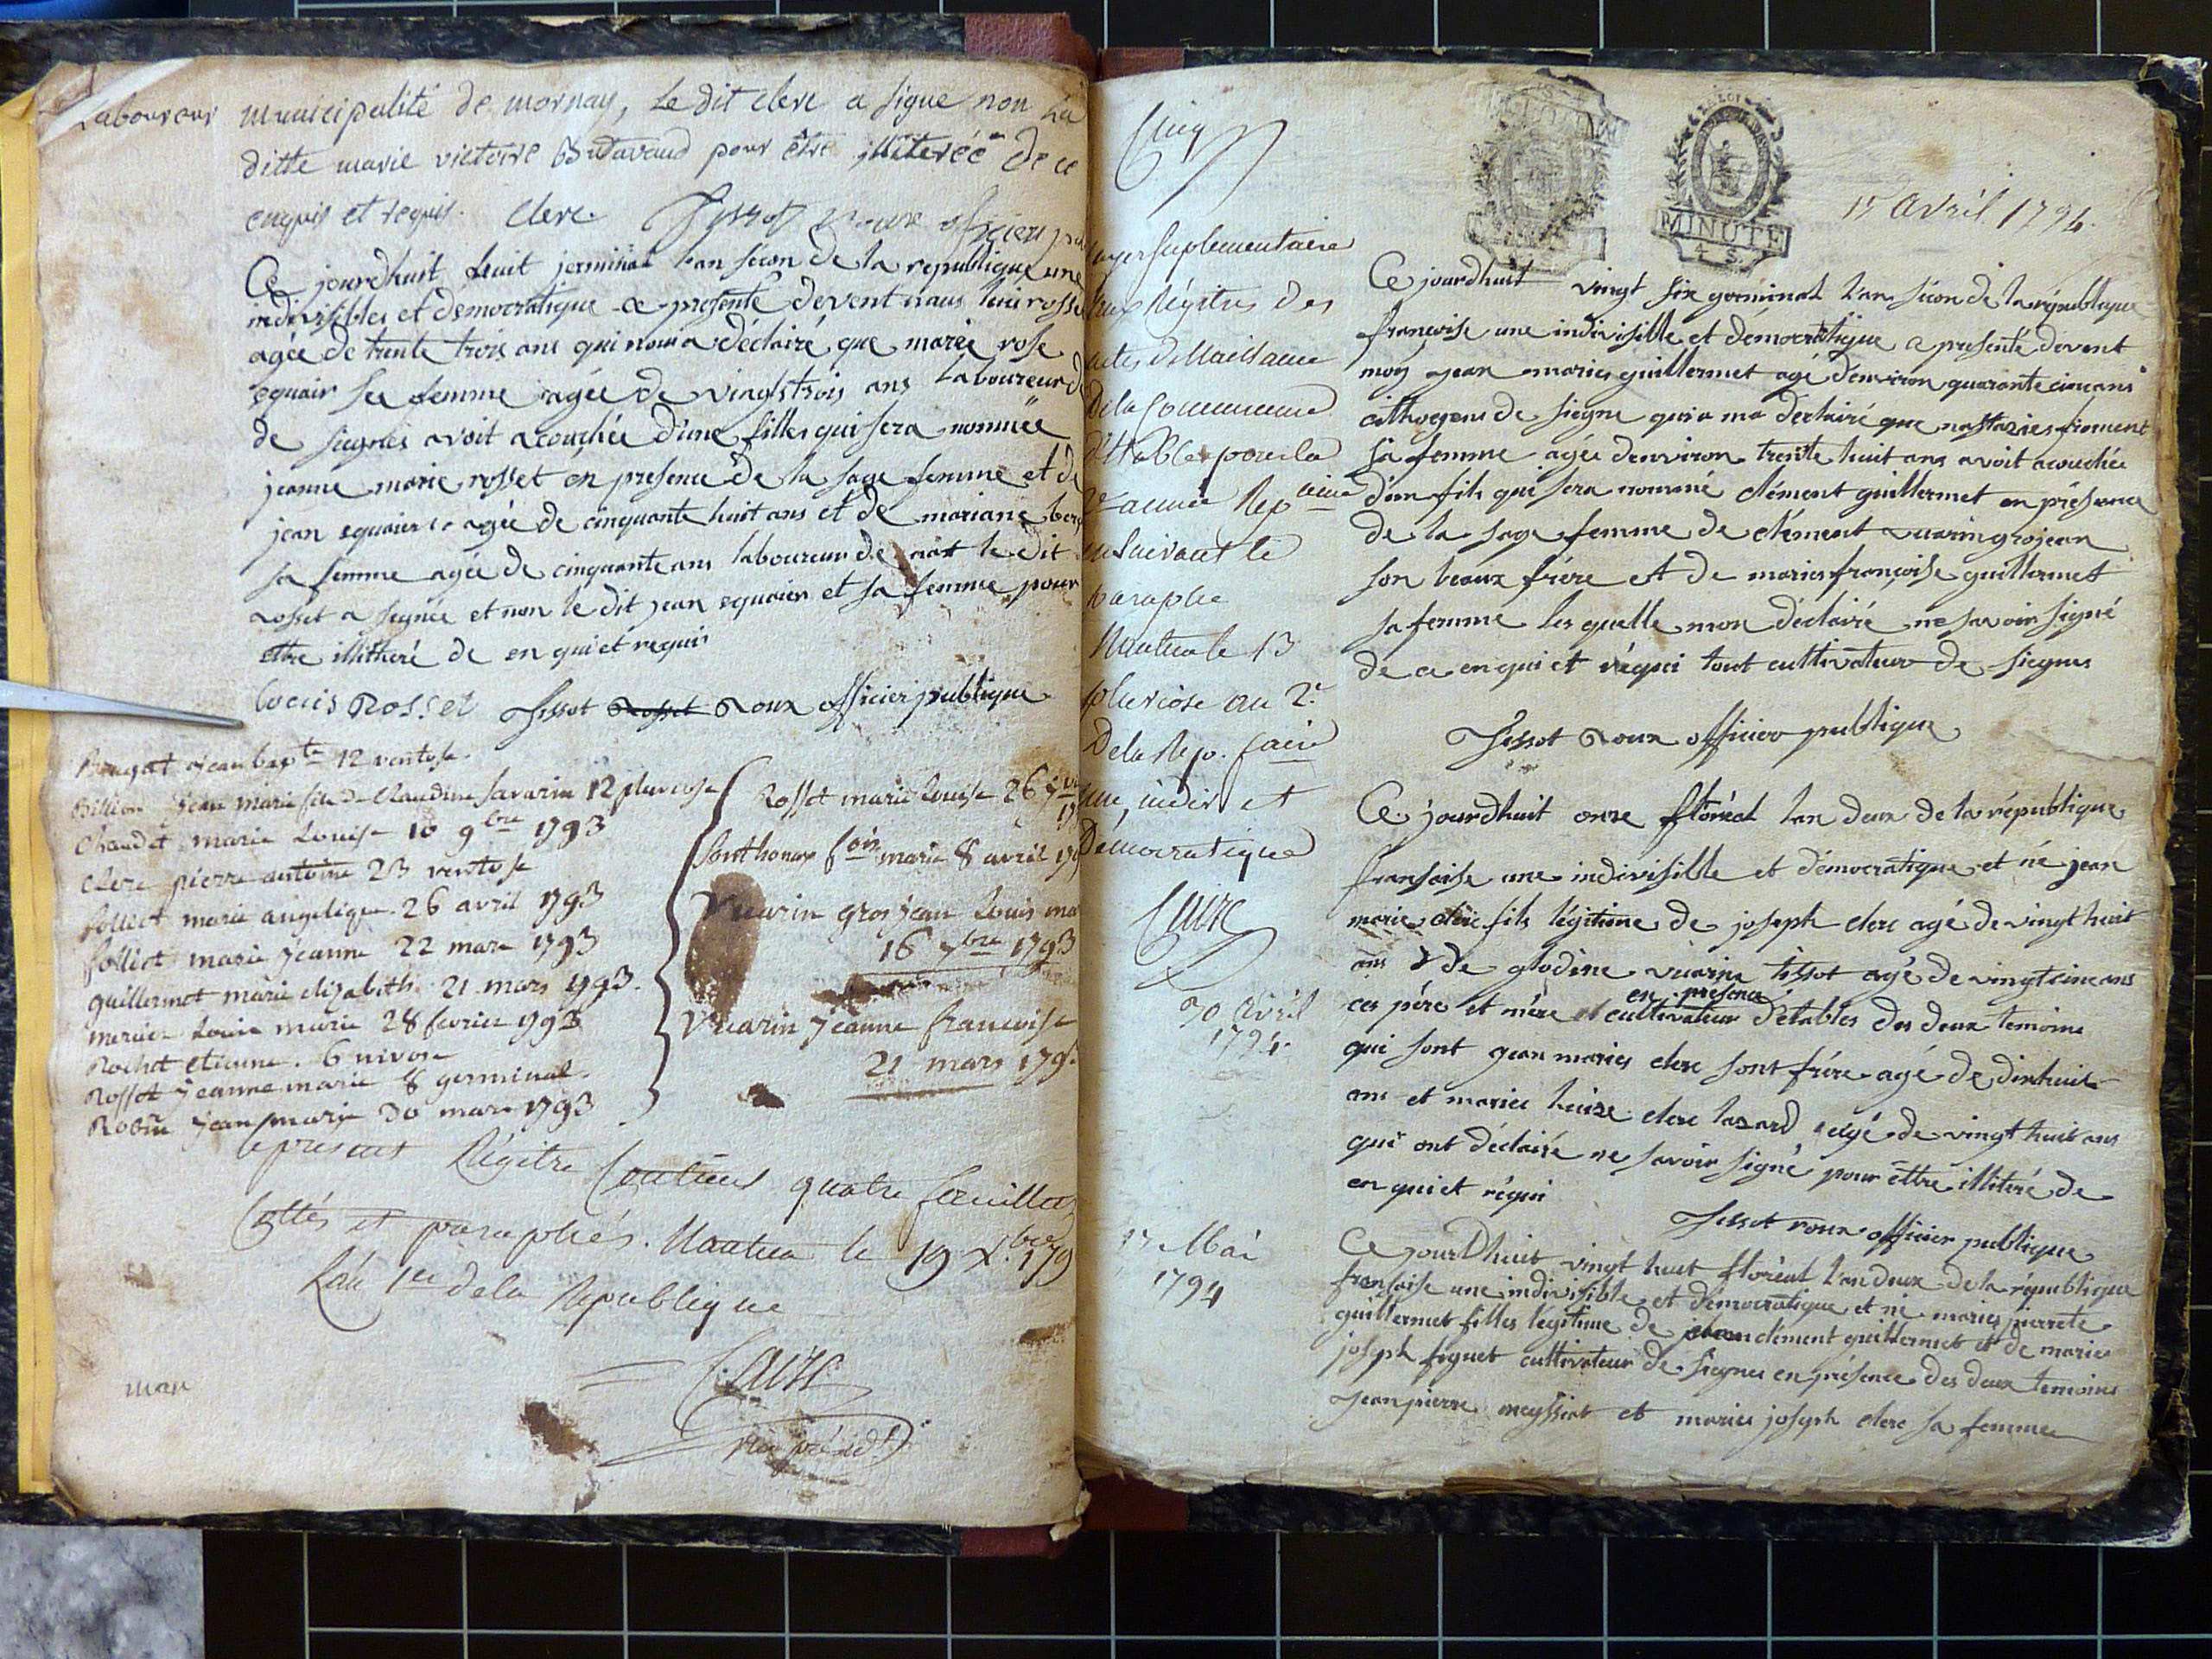 Laboureur municipalité de mornay, Le dit clerc a signe non La
ditte marie victoire pour être illiterée De ce
enquis et requis. Clerc. Tissot roux officier
Ce jourdhuit huit jerminal l'an secon de la republique une
indivisibles et democratique a presenté devent nous
agée de trente trois ans qui nous a déclairé que marie rose
equair sa femme agée de vingtstrois ans Laboureur de
de siegnes avoit acouchée d'une filles qui sera nommée
jeanne marie rosset en presence de la sage femme et de
jean equaier agée de cinquante huit ans et de mariane
sa femme agée de cinquante ans laboureur de le dit
rosset a signée et non le dit jean equaier et sa femme pour
ettre illitheré de en qui et requis
Louis Rosset Tissot roux officier publique
jean bapte 12 ventose
Billion jean marie fils de Claudine Savarin 12 pluviose
Chaudet marie Louise 10 9bre 1793
Clerc pierre antoine 23 ventose
follict marie angelique 26 avril 1793
follict marie jeanne 22 mars 1793
guillermet marie elizabeth 21 mars 1793
mercier Louise marie 28 fevrier 1793
Rochet etienne. 6 nivose
Rosset jeanne marie 8 germinal.
Robin jean marie 30 mars 1793
Rosset marie Louise 26
Sonthonax fois marie 8 avril
Vuarin gros jean Louis
16 7bre 1793
Vuarin jeanne francoise
21 mars
Le present Régitre Contient quatre feuillets
Cottés et paraphés. Nantua le 19 Xbre 179
L'an 1er de la Republique
man
Cinq
suplementaire
aux Régitres des
actes de Naissance
De la Commune
d'Etable pour la
2e année Repcaine
en suivant le
paraphe
Nantua le 13
pluviose an 2e
De la Rep. fcaine
une, indiv. et
Démocratique
MINUTE
4 S.
15 avril 1794.
Ce jourdhuit vingt six geréminal l'an sécon de la république
francoise une indivisible et démocratique a presenté devent
moy jean maries guillermet agé d'environ quarante cinc ans
de siegne qui a ma declairé que nastazies froment
sa femme agée d'environ trente huit ans avoit acouchée
d'un fils qui sera nommé clément guillermet en présence
de la sage femme de clément vuarin grojean
son beaux frére et de maries françoise guillermet
sa femme les quelle mon déclairé ne savoir signé
de ce en qui et réqui tout cultivateur de siegnes
Tissot roux officier publique
Ce jourdhuit onze floréal l'an deux de la république
fransaise une indivisible et démocratique et né jean
marie clerc fils légitime de joseph clerc agé de vingt huit
ans & de glodine vuarin tissot agé de vingt cinc ans
en presence
ces pére et mére cultivateur d'etables des deux temoins
qui sont jean maries clerc sont frére agé de dixhuit
ans et maries luize clerc lazard agé de vingt huit ans
qui ont déclairé ne savoir signé pour ettre illiteré de
en qui et réqui
Tissot roux officier publique
30 avril
1794.
17 Mai
1794
Ce jourDhuit vingt huit floréal l'an deux de la république
fransaise une indivisible et démocratique et né maries pierrete
guillermet filles légitime de clément guillermet et de maries
joseph foguet cultivateur de siegnes en présence des deux temoins
jean pierre meyssiat et maries joseph clerc sa femme